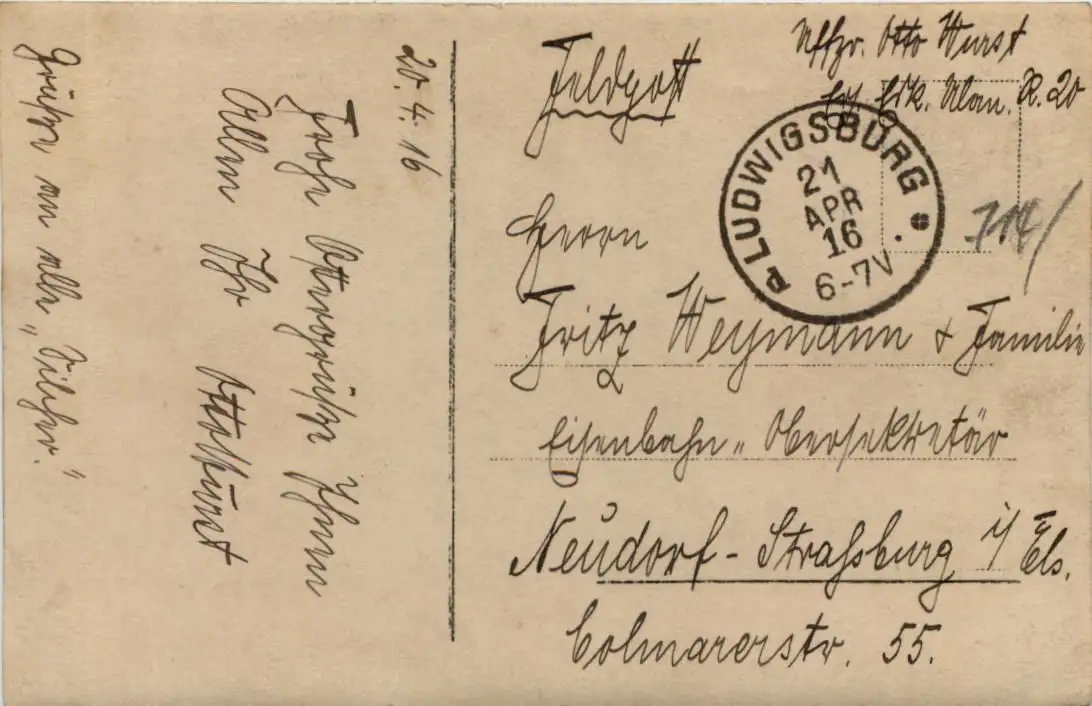 20. 4. 16
Frohe Ostergrüße Ihnen
Allen Ihr Otto Wurst
Grüße an alle
Feldpost
Uffzr. Otto Wurst
Esk. Ulan. R. 20
LUDWIGSBURG
21
APR
16
6-7V
Herrn
Fritz Weymann & Familie
Eisenbahn„ Obersekretär
Neudorf - Straßburg i/ Els.
Colmarerstr. 55.